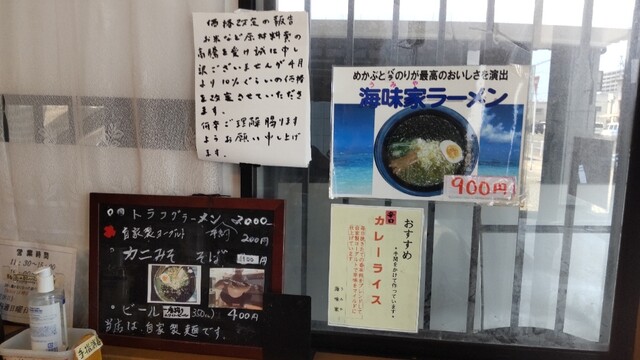 価格改定の報告
お米など原材料費の
高騰を受け誠に申し
訳ございませんが4月
より10%ぐらいの価格
を改定させていただき
ます。
何卒ご理解賜ります
ようお願い申し上げ
ます。
めかぶとのりが最高のおいしさを演出
うみや
海味家ラーメン
900円
トラフグラーメン 2000
自家製ヨーグルト 200円
カニみそ そば
ビール 350ml 400円
当店は、自家製麺です。
おすすめ
・手間をかけて作っています・
辛口
カレーライス
海味家
営業時間
11:30